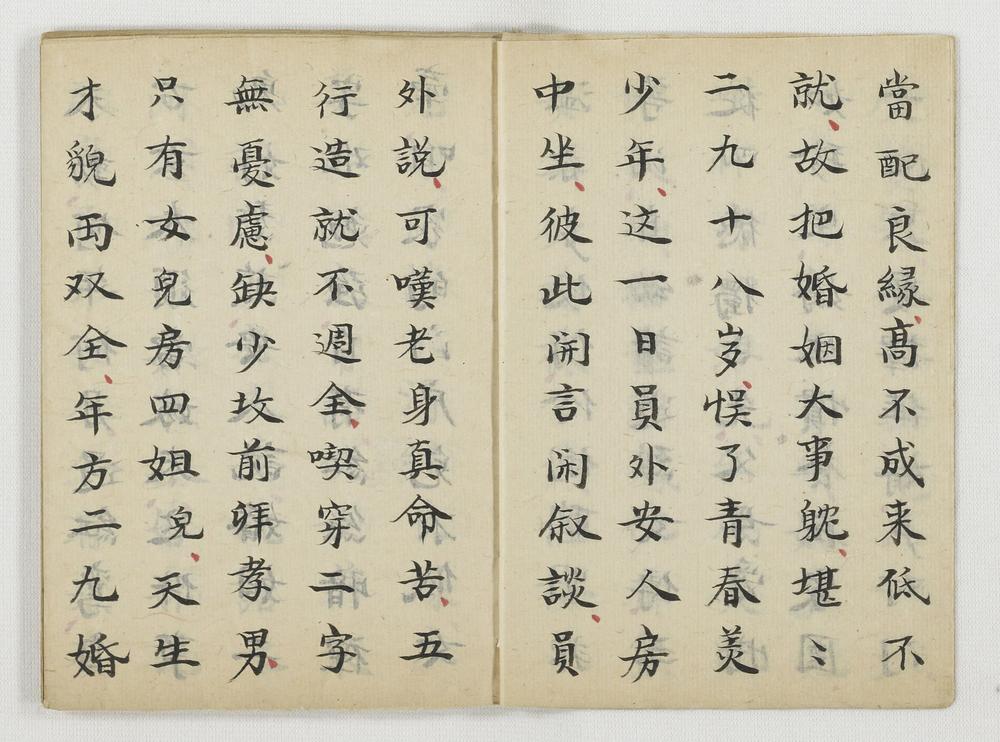 當配良緣、高不成来低不
就、故把婚姻大事躭、堪〻
二九十八岁、悮了青春美
少年、这一日員外安人房
中坐、彼此開言闲叙談、員
外說、可嘆老身真命苦、五
行造就不週全、喫穿二字
無憂慮、缺少坟前拜孝男、
只有女兒房四姐兒、天生
才貌両双全、年方二九婚